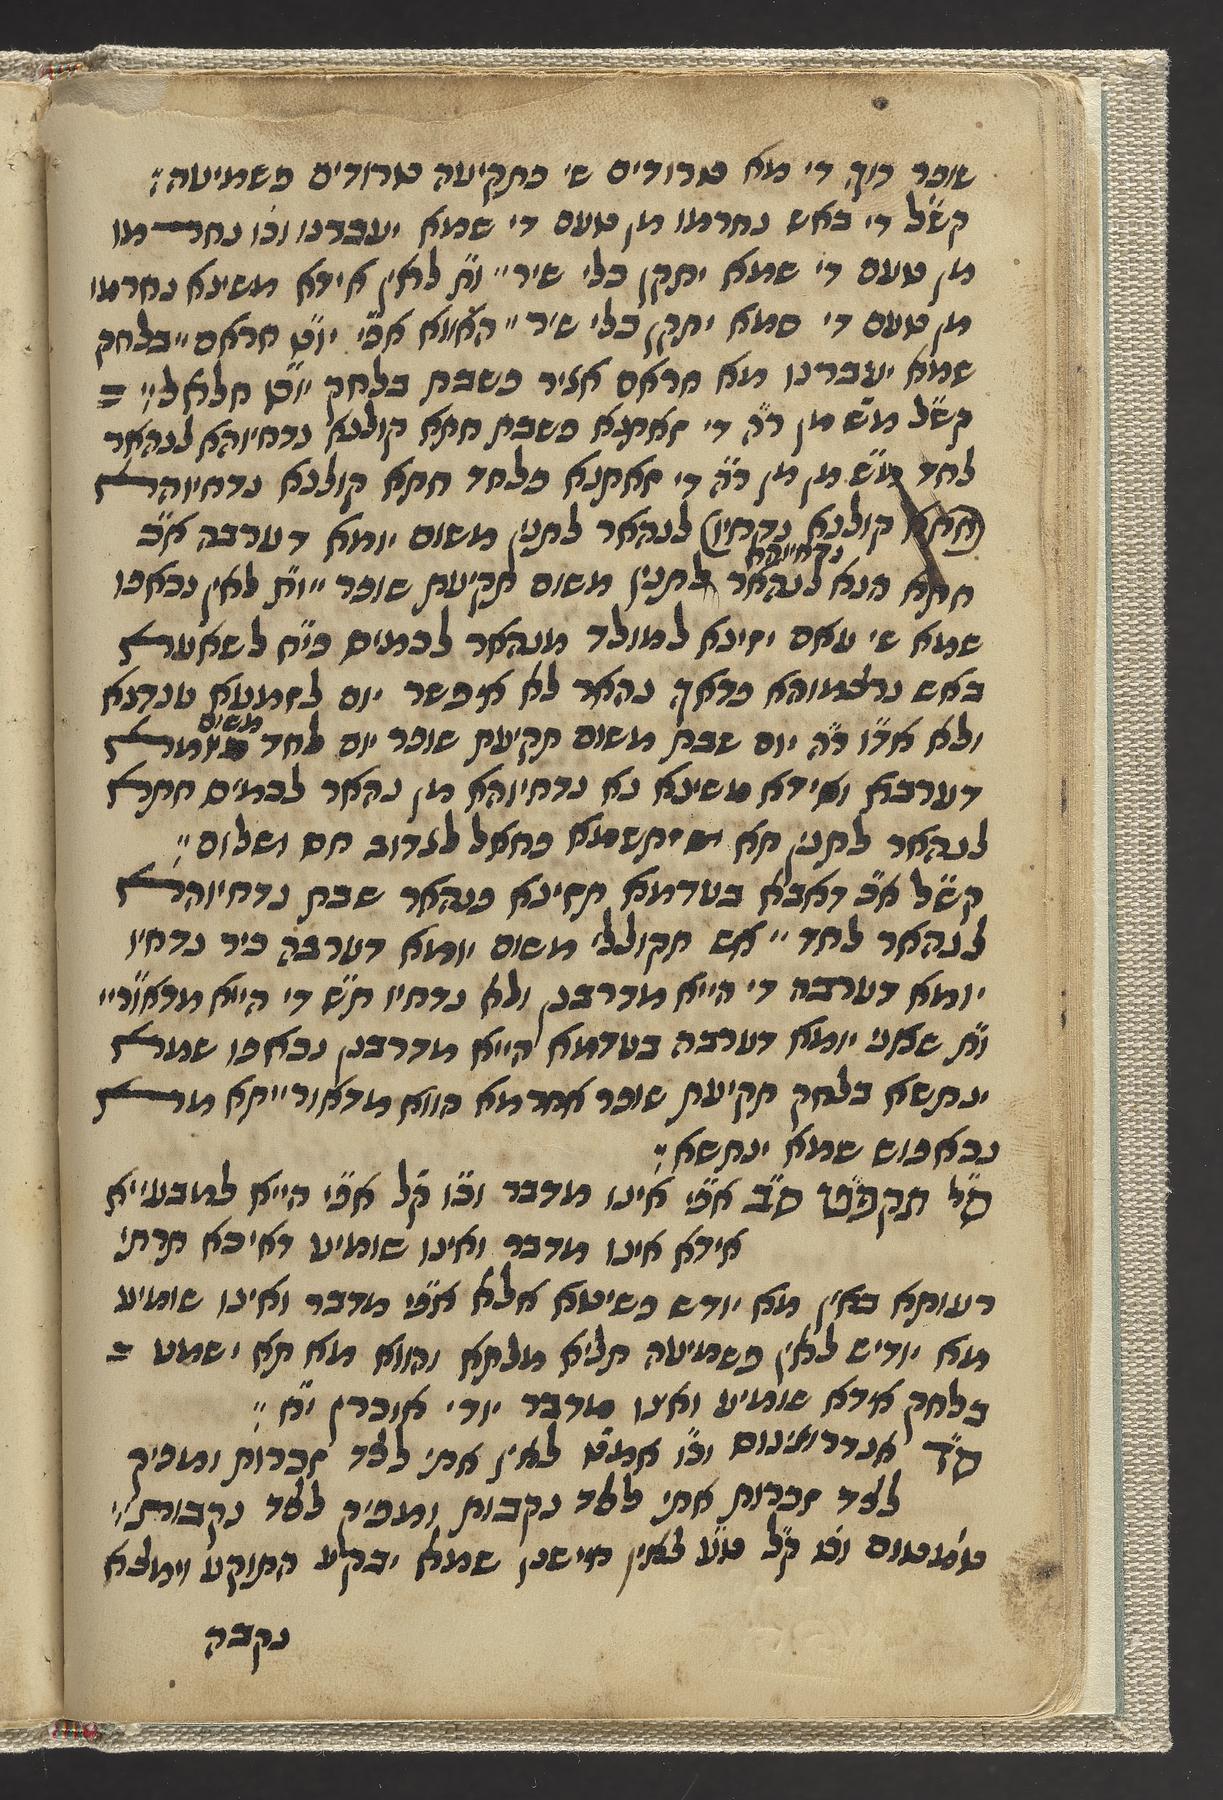 שופר רוך די מא טרודים שי בתקיעה טרודים בשמיעה :
קש״ל די באש נחרמו מן טעם די שמא יעברנו וכו׳ נחרמו
מן טעם די שמא יתקן כלי שיר ״ ות׳ לאין אידא משינא נחרמו
מן טעם די סמא יתקן כלי שיר ״ האווא אפי׳ יו״ט חראם ״ בלחק
שמא יעברנו מא חראם אזיר בשבת בלחק יו״ט חלאל ״ =
קש״ל מ״ש מן ר״ה די זאתנא בשבת חתא קולנא נדחיוהא לנהאר
לחד מ״ש מן מן ר״ה די זאתנא בלחד חתא קולנא נדחיוהא
(חתא קולנא נדחיו) לנהאר לתנין משום יומא דערבה א״כ
נדחיוהא
חתא הנא לנהאר לתנין משום תקיעת שופר ״ ות׳ לאין נכאפו
שמא שי עאם יזינא למולד מנהאר לכמים כ״ח לשאערא
באש נרצמוהא כדאך נהאר לא איפשר יום לזמעא טנדנא
משום
ולא אד״ו ר״ה יום שבת משום תקיעת שופר יום לחד יומא
דערבא ואידא משינא נא נדחיוהא מן נהאר לכמים חתא
לנהאר לתנין תא יתשמא כחאל לנדוב חס ושלום ״
קש״ל א״כ דאבא בעדמא תזינא בנהאר שבת נדחיוהא
לנהאר לחד ״ אש תקוללי משום יומא דערבה כיר נדחיו
יומא דערבה די הייא מדרבנן ולא נדחיו ת״ש די הייא מדאוריי׳
ות׳ שאני יומא דערבה בעדמא הייא מדרבנן נכאפו שמא
ינתשא בלחק תקיעת שופר אחדמא הווא מדאורייתא מא
נכאפוש שמא ינתשא :
ס״י תקפ״ט ס״ב אפי׳ אינו מדבר וכו׳ ק״ל אפי׳ הייא למבעייא
אידא אינו מדבר ואינו שומיע דאיכא תרתי
רעותא באין מא יודש פשיטא אלא אפי׳ מדבר ואינו שומיע
מא יודיש לאין בשמיעה תליא מלתא והווא מא תא ישמע =
בלחק אידא שומיע ואינו מדבר יודי אוכרין י״א ״
ס״ד אנדרוגינוס וכו׳ אמ״ט לאין אתי לצד זכרות ומפיק
לצד זכרות אתי לצד נקבות ומפיק לצד נקבות ״
טומטום וכו׳ ק״ל ט״ע לאין חיישנן שמא יבקע התוקע וימצא
נקבה